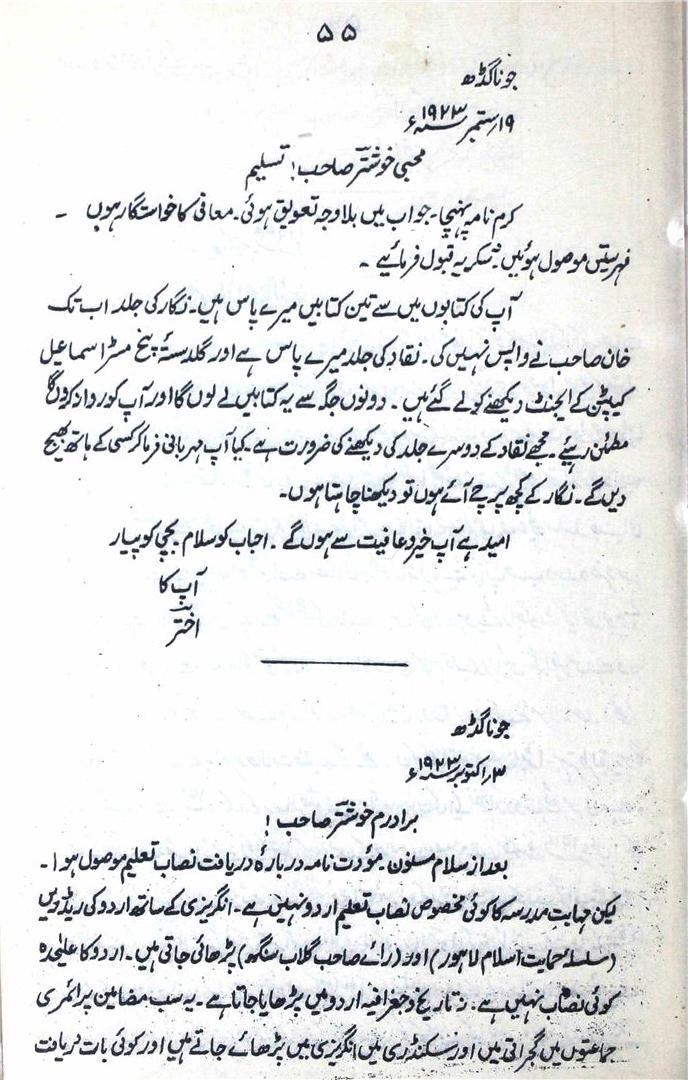 ۵۵
جوناگڈھ
۱۹؍ستمبر ۱۹۲۳ء
محبی خوشتر صاحب! تسلیم
کرم نامہ پہنچا۔ جواب میں بلاوجہ تعویق ہوئی۔ معافی کا خواستگار ہوں ۔
فہرستیں موصول ہوئیں۔ شکریہ قبول فرمائیے ۔
آپ کی کتابوں میں سے تین کتابیں میرے پاس ہیں۔ نگار کی جلد اب تک
خان صاحب نے واپس نہیں کی۔ نقاد کی جلد میرے پاس ہے اور گلدستۂ پنچ مسٹر اسماعیل
کیپٹی کے ایجنٹ دیکھنے کو لے گئے ہیں۔ دونوں جگہ سے یہ کتابیں لے لوں گا اور آپ کو روانہ کروں گا
مطمئن رہیئے۔ مجھے نقاد کے دوسرے جلد کی دیکھنے کی ضرورت ہے۔ کیا آپ مہربانی فرما کر کسی کے ہاتھ بھیج
دیں گے۔ نگار کے کچھ پرچے آئے ہوں تو دیکھنا چاہتا ہوں۔
امید ہے آپ خیر و عافیت سے ہوں گے ۔ احباب کو سلام بچی کو پیار
آپ کا
اختر
جوناگڈھ
۳؍اکتوبر ۱۹۲۳ء
برادرم خوشتر صاحب !
بعد از سلام مسنون۔ مؤدت نامہ دربارۂ دریافت نصاب تعلیم موصول ہوا۔
لیکن مہابت مدرسہ کا کوئی مخصوص نصاب تعلیم اردو نہیں ہے۔ انگریزی کے ساتھ اردو کی ریڈریں
(سلسلۂ حمایت اسلام لاہور) اور (رائے صاحب گلاب سنگھ) پڑھائی جاتی ہیں۔ اردو کا علیٰحدہ
کوئی نصاب نہیں ہے۔ نہ تاریخ و جغرافیہ اردو میں پڑھایا جاتا ہے۔ یہ سب مضامین پرائمری
جماعتوں میں گجراتی میں اور سکنڈری میں انگریزی میں پڑھائے جاتے ہیں اور کوئی بات دریافت